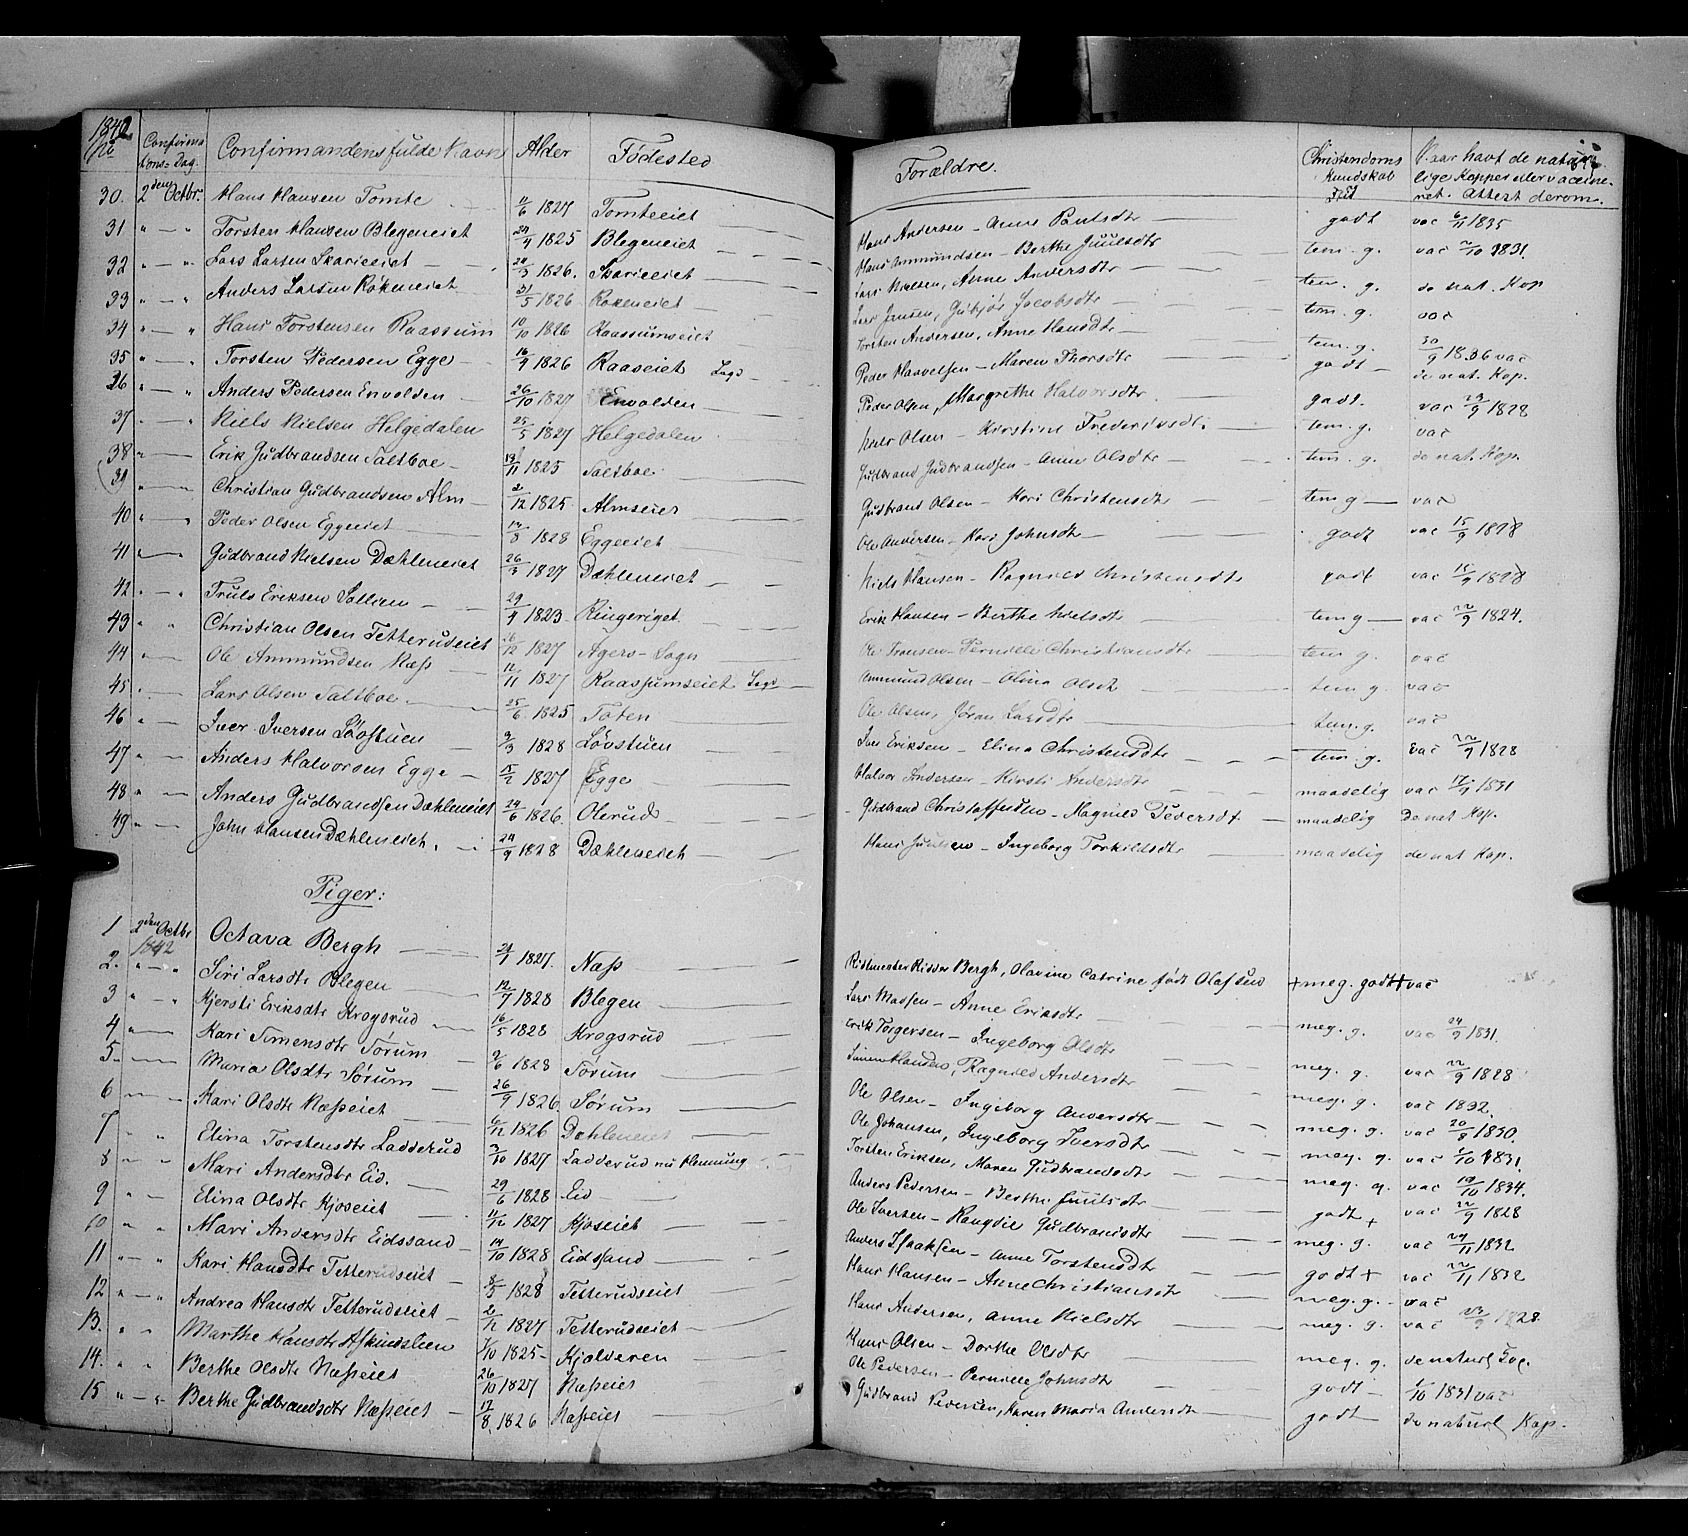 1842
No Confirmations-Dag. Confirmandens fulde Navn Alder Födested Forældre. Christendoms Kundskab Naar havt de naturlige Kopper eller vaccineret. Attest derom.
30. 2den Octbr. Hans Hansen Tomte 11/6 1827 Tomteeiet Hans Andersen - Anne Paulsdtr godt vac 6/11 1835
31 " - " Torsten Hansen Blegeneiet 24/4 1825 Blegeneiet Hans Ammundsen - Berthe Juulsdtr tem. g. vac 2/10 1831.
32 " - " Lars Larsen Skarieeiet 24/3 1826. Skarieeiet Lars Nielsen, Anne Andersdtr tem. g. de nat. Kop
33 " - " Anders Larsen Rökeneiet 31/5 1826 Rökeneiet Lars Jensen, Gubjör Jacobsdtr tem. g. vac
34 " - " Hans Torstensen Raassum 10/10 1826 Raassumseiet Torsten Andersen, Anne Hansdtr tem. g. 30/9 1836 vac
35 " - " Torsten Pedersen Egge 16/4 1826 Raaseiet Sogn Peder Haavelsen - Maren Thorsdtr godt de nat. Kop.
36 " - " Anders Pedersen Envolden 26/10 1827 Envolden Peder Olsen, Margrethe Halvorsdtr godt. vac 23/9 1828
37 " - " Niels Nielsen Helgedalen 25/5 1827 Helgedalen Niels Olsen - Kirstine Frederiksdt. tem. g. vac
38 " - Erik Gudbrandsen Saltboe 13/11 1825 Saltboe Gudbrand Gudbrandsen - Anne Olsdtr tem. g. de nat. Kop.
39 " - " Christian Gudbrandsen Alm 2/12 1825 Almseiet Gudbrand Olsen - Kari Christensdtr tem g vac
40 " - " Peder Olsen Eggeeiet 14/3 1828 Eggeeiet Ole Andersen - Kari Johnsdtr godt vac 15/9 1828
41 " - Gudbrand Nielsen Dæhleneiet 26/3 1827 Dæhleneiet Niels Hansen - Ragnild Christensdtr godt vac 15/9 1828
42 " - " Truls Eriksen Sollien 29/4 1823 Ringeriget Erik Hansen - Berthe Nielsdtr tem g vac 22/9 1824.
43 " " Christian Olsen Tetterudeiet 26/12 1827 Agers-Sogn Ole Fransen - Pernille Christiansdtr tem g. vac
44 " - Ole Ammundsen Næss 12/11 1827 Raassumseiet Sogn Ammund Olsen - Olina Olsdt tem g. vac
45 " - Lars Olsen Saltboe 25/6 1825 Toten Ole Olsen, Jöran Larsdtr tem. g. vac
46 " - Iver Iversen Lövstuen 9/3 1828 Lövstuen Iver Eriksen - Elina Christensdtr tem. g. vac 22/9 1828
47 " - Anders Halvorsen Egge 15/2 1827 Egge Halvor Andersen - Kirsti Andersdtr maadelig vac 17/9 1831
48 " - Anders Gudbrandsen Dæhleneiet 24/6 1826. Olerud Gudbrand Christoffersen - Magnild Pedersdt maadelig de nat Kop.
49 " - John Hansen Dæhleneiet. 24/9 1828 Dæhleneiet Hans Juulsen - Ingeborg Torkildsdtr maadelig de nat Kop.
Piger:
1 2den Octbr 1842 Octava Bergh 24/1 1827. Næss Ridtmester Ridder Bergh, Olavine Catrine födt Olafsen + meg. godt + vac
2. " - " Siri Larsdtr Blegen 12/7 1828 Blegen Lars Madsen - Anne Eriksdtr meg. g. vac 24/9 1831.
3 " - " Kjersti Eriksdtr Krogsrud 16/5 1828 Krogsrud Erik Torgersen - Ingeborg Olsdtr meg. g. vac 22/9 1828
4 " - Kari Simensdtr Sorum 9/6 1828 Sörum Simen Hansen, Ragnild Andersdtr meg. g. vac 1832.
5. - Maria Olsdtr Sörum 26/9 1826 Sörum Ole Olsen - Ingeborg Andersdtr meg. g. vac 20/8 1830.
6 " - Kari Olsdtr Næsseiet 6/12 1826 Dæhleneiet Ole Johansen, Ingeborg Iversdtr meg. g. vac 1/10 1831.
7 " " Elina Torstensdtr Ladderud 3/10 1827 Ladderud nu Henning Torsten Eriksen, Maren Gudbrandsdtr meg. g. vac 19/10 1834.
8 " - " Mari Andersdtr Eid. 29/6 1828 Eid Anders Pedersen - Berthe Juulsdtr godt + vac 22/9 1828
9 " - Elina Olsdtr Kjoseiet 11/12 1827 Kjoseiet Ole Iversen - Rangdie Gudbrandsdtr meg. g. vac 24/11 1832
10 " - Mari Andersdtr Eidssand 14/10 1828 Eidssand Anders Isaaksen - Anne Torstensdtr godt + vac 22/11 1832
11 " - " Kari Hansdtr Tetterudseiet 8/5 1828 Tetterudseiet Hans Hansen - Anne Christiansdtr meg. g. - vac
12 " - " Andrea Hansdtr Tetterudseiet 2/12 1827 Tetterudseiet Hans Andersen, Anne Nielsdtr meg. g. vac 23/9 1828
13. " " Marthe Hansdtr Askindslien 7/10 1825 - Kjolveren Hans Olsen - Dorthe Olsdtr meg. g. de naturl Kop.
14. " " Berthe Olsdtr Næsseiet 26/10 1827 Næsseiet Ole Pedersen - Pernille Johnsdtr godt - 1/10 1831 vac
15 " - " Berthe Gudbrandsdtr Næsseiet 17/8 1826 Næsseiet Gudbrand Pedersen, Karen Maria Andersdtr godt de naturl Kop.